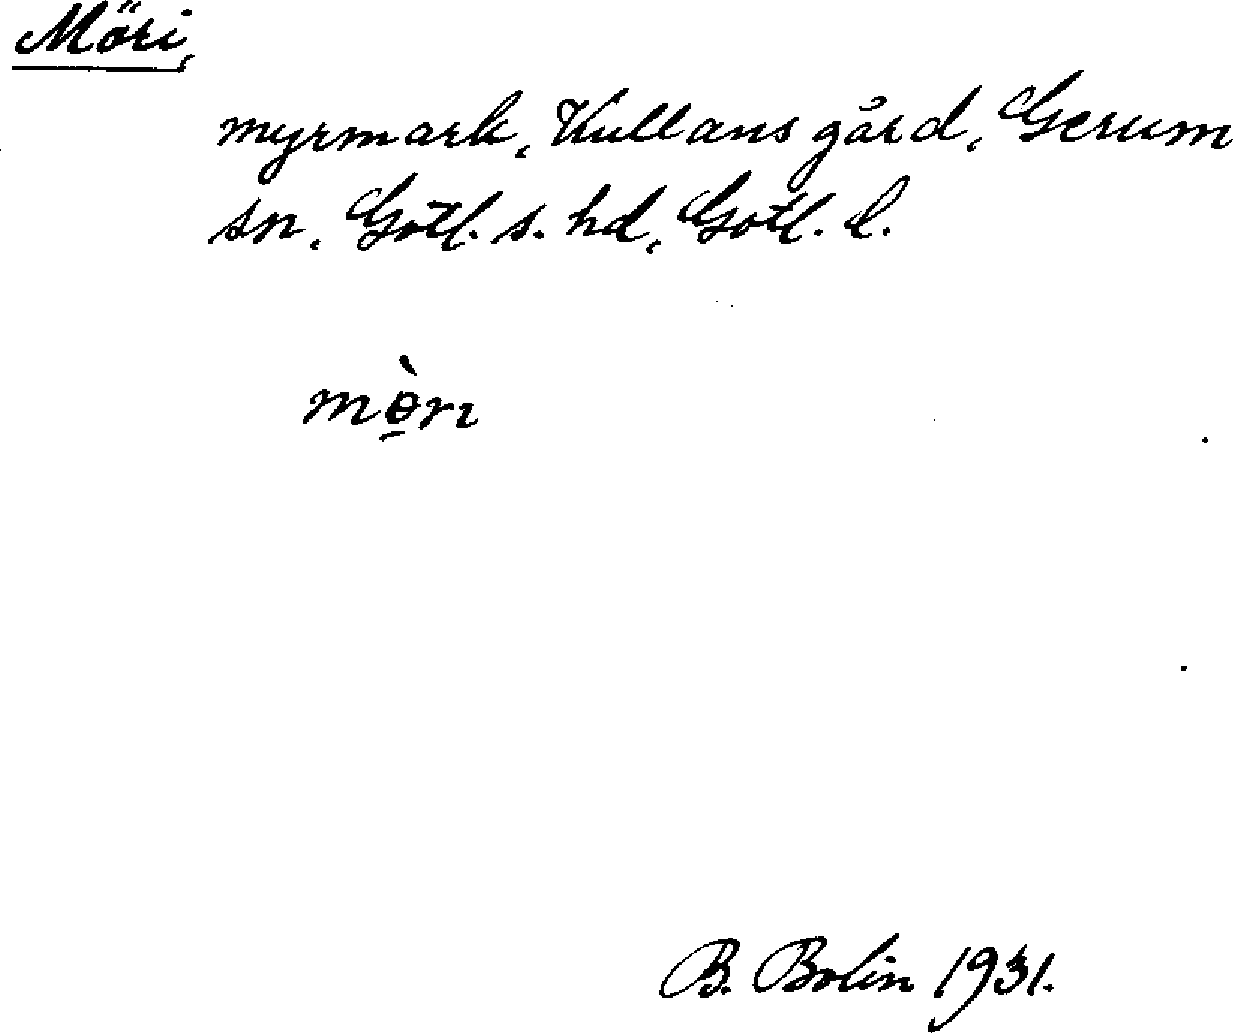 Möri,
myrmark, Kullans gård, Gerum
sn, Gotl. s. hd, Gotl. l.
mø̱̀rı
B. Bolin 1931.